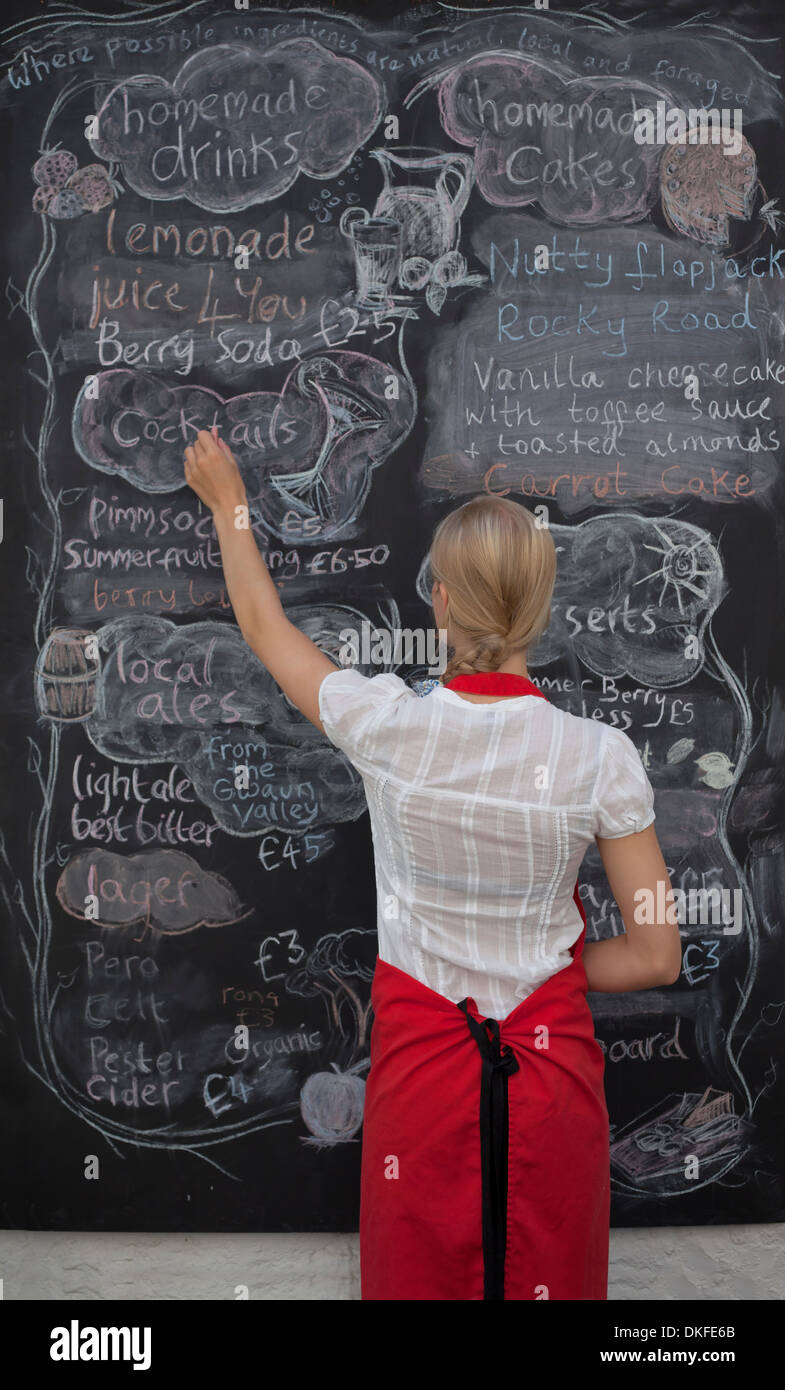 Where possible ingredients are natural, local and foraged
homemade
drinks
lemonade
juice 4 You
Berry Soda £2.5
Cocktails
£5
£6.50
local
ales
from
the
Gwaun
Valley
light ale
best bitter
£45
lager
£3
Celt
£3
Organic
Cider £4
homemade
Cakes
Nutty flapjack
Rocky Road
Vanilla cheesecake
with toffee sauce
+ toasted almonds
Carrot Cake
Berry £5
£3
alamy
Image ID: DKFE6B
www.alamy.com